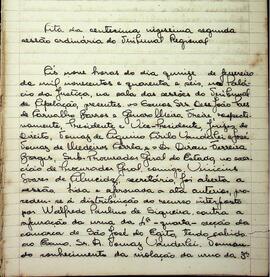 Ata da centesima vigesima segunda
sessão ordinária do Tribunal Regional.
Ás nove horas do dia quinze de fevereiro
de mil novecentos e quarenta e seis, no Palá-
cio da Justiça, na sala das sessões do Tribunal
de Apelação, presentes os Exmos. Srs. Des.
de Carvalho Barros e Genaro Freire, respecti-
vamente, Presidente e Vice-Presidente, Juizes de
Direito, Tomaz de Aquino Cirilo Wanderley, José
Tomaz de Medeiros Corrêa e o Dr. Dirceu Ferreira
Borges, Sub-Procurador Geral do Estado, no exercí-
cio de Procurador Geral, comigo, Vinicius
Soares de Almeida, secretário, foi aberta a
sessão. Lida e aprovada a ata anterior, pro-
cedeu-se á distribuição do recurso interposto
por Walfredo Paulino de Siqueira, contra a
apuração da urna da 4ª quarta-secção da
comarca de São José do Egito, tendo cabido
ao Exmo. Sr. Dr. Tomaz Wanderley. Toman-
do conhecimento da violação da urna da 3ª